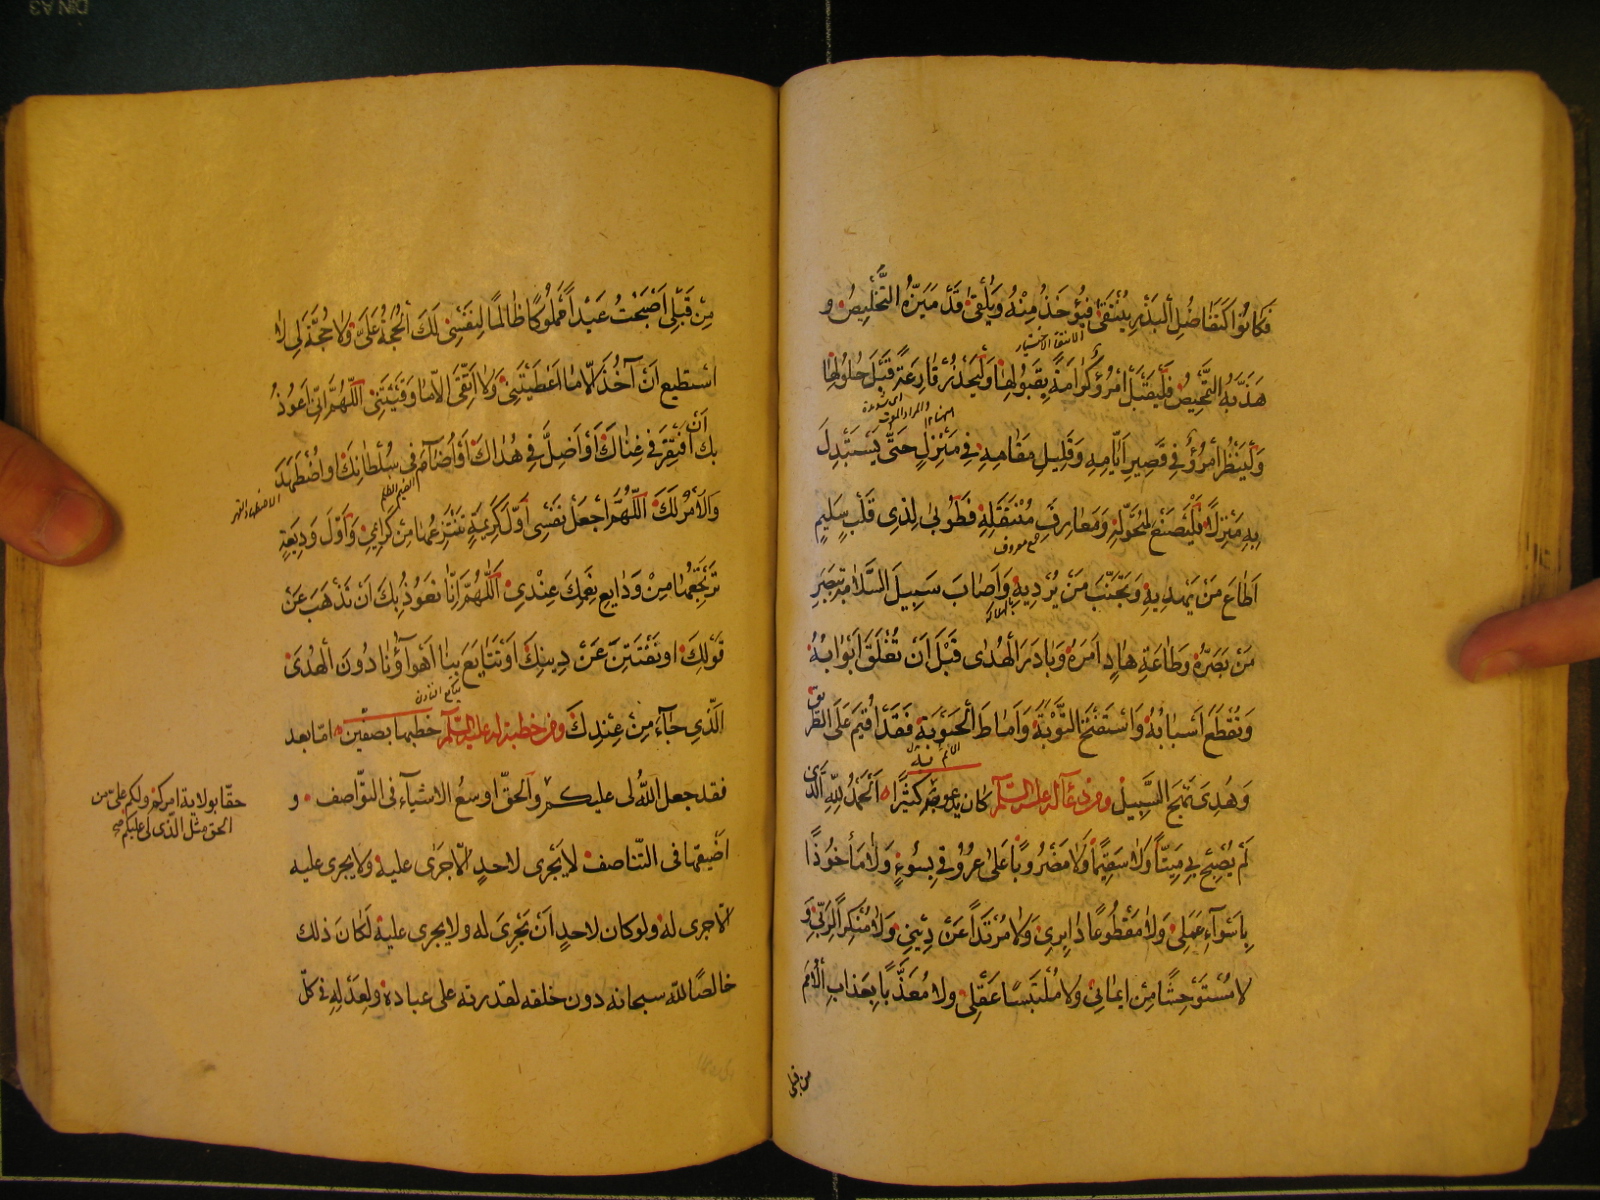 فَكَانُوا كَتَفَاضُلِ الْبَذْرِ يُنْتَقَى فَيُؤْخَذُ مِنْهُ وَيُلْقَى قَدْ مَيَّزَهُ التَّخْلِيصُ و
الانتقا الاختيار
هَذَّبَهُ التَّمْحِيصُ فَلْيَقْبَلِ امْرُؤٌ كَرَامَةً بِقَبُولِهَا وَلْيَحْذَرْ قَارِعَةً قَبْلَ حُلُولِهَا
اى شديدة
والمراد الموت
وَلْيَنْظُرِ امْرُؤٌ فِي قَصِيرِ اَيَّامِهِ وَقَلِيلِ مَقَامِهِ فِي مَنْزِلٍ حَتَّى يَسْتَبْدِلَ
بِهِ مَنْزِلًا فَلْيَصْنَعْ لِمُتَحَوَّلِهِ وَمَعَارِفِ مُنْتَقَلِهِ فَطُوبَى لِذِى قَلْبٍ سَلِيمٍ
جمع معروف
اَطَاعَ مَنْ يَهْدِيهِ وَتَجَنَّبَ مَنْ يُرْدِيهِ وَاَصَابَ سَبِيلَ السَّلَامَةِ بِبَصَرِ
يهلكه
مَنْ بَصَّرَهُ وَطَاعَةِ هَادٍ اَمَرَهُ وَبَادَرَ الْهُدَى قَبْلَ اَنْ تُغْلَقَ اَبْوَابُهُ
وَتُقْطَعَ اَسْبَابُهُ وَاسْتَفْتَحَ التَّوْبَةَ وَاَمَاطَ الْحَوْبَةَ فَقَدْ اُقِيمَ عَلَى الطَّرِيقِ
الاثم
وَهُدِىَ نَهْجَ السَّبِيلِ ومن دعآء له عليه السّلام كان يدعو به كَثِيرًا اَلْحَمْدُ لِلَّهِ الَّذِى
لَمْ يُصْبِحْ بِي مَيِّتًا وَلَا سَقِيمًا وَلَا مَضْرُوبًا عَلَى عُرُوقِي بِسُوءٍ وَلَا مَأْخُوذًا
بِاَسْوَاءِ عَمَلِى وَلَا مَقْطُوعًا دَابِرِى وَلَا مُرْتَدًّا عَنْ دِينِي وَلَا مُنْكِرًا لِرَبِّي وَ
لَا مُسْتَوْحِشًا مِنْ اِيمَانِي وَلَا مُلْتَبِسًا عَقْلِى وَلَا مُعَذَّبًا بِعَذَابِ الْاُمَمِ
من قبلى
مِنْ قَبْلِى اَصْبَحْتُ عَبْدًا مَمْلُوكًا ظَالِمًا لِنَفْسِى لَكَ الْحُجَّةُ عَلَىَّ وَلَا حُجَّةَ لِى لَا
اَسْتَطِيعُ اَنْ آخُذَ اِلَّا مَا اَعْطَيْتَنِى وَلَا اَتَّقِىَ اِلَّا مَا وَقَيْتَنِى اَللَّهُمَّ اِنِّى اَعُوذُ
بِكَ اَنْ اَفْتَقِرَ فِي غِنَاكَ اَوْ اَضِلَّ فِي هُدَاكَ اَوْ اُضَامَ فِي سُلْطَانِكَ اَو اُضْطَهَدَ
الضيم الظلم
الاضطهاد القهر
وَالْاَمْرُ لَكَ اَللَّهُمَّ اجْعَلْ نَفْسِى اَوَّلَ كَرِيمَةٍ تَنْتَزِعُهَا مِنْ كَرَائِمِي وَاَوَّلَ وَدِيعَةٍ
تَرْتَجِعُهَا مِنْ وَدَايِعِ نِعَمِكَ عِنْدِى اَللَّهُمَّ اِنَّا نَعُوذُ بِكَ اَنْ نَذْهَبَ عَنْ
قَوْلِكَ اَوْ نَفْتَتِنَ عَنْ دِينِكَ اَوْ تَتَايَعَ بِنَا اَهْوَاؤُنَا دُونَ الْهُدَى
الَّذِى جَآءَ مِنْ عِنْدِكَ ومن خطبة له عليه السّلام خطبها بصفّين امّا بعد
فقد جعل اللّٰهُ لى عليكم والحقّ اوسعُ الاشيآء فى التّواصف و
حقّا بولاية امركم ولكم علىّ من
الحق مثل الّذى لى عليكم صح
اَضْيقها فى التّناصف لا يَجْرى لاحدٍ الّا جَرَى عليه ولا يجرى عليه
الّا جرى له ولو كان لاحدٍ اَنْ يَجْرِىَ له ولا يجرى عليه لَكَانَ ذلك
خالصًا للّه سبحانه دون خلقه لقدرته على عباده ولعَدْلِهِ فى كلّ